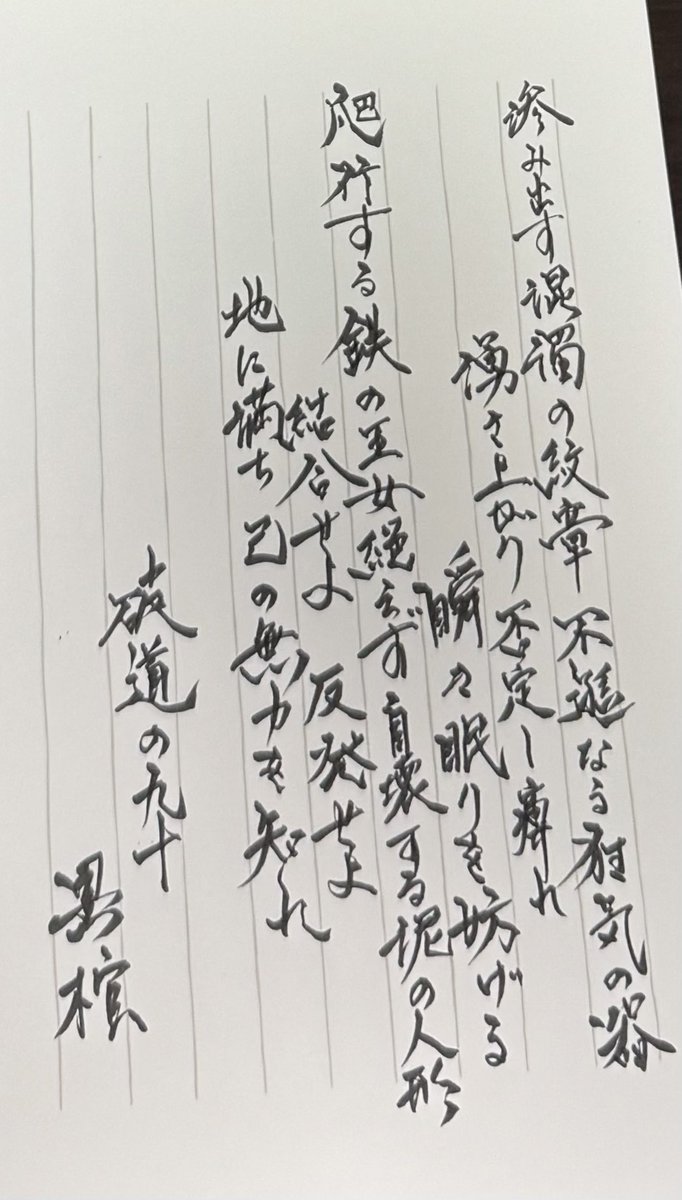 滲み出す混濁の紋章 不遜なる狂気の器
湧き上がり否定し痺れ
瞬き眠りを妨げる
爬行する鉄の王女絶えず自壊する泥の人形
結合せよ 反発せよ
地に満ち己の無力を知れ
破道の九十
黒棺